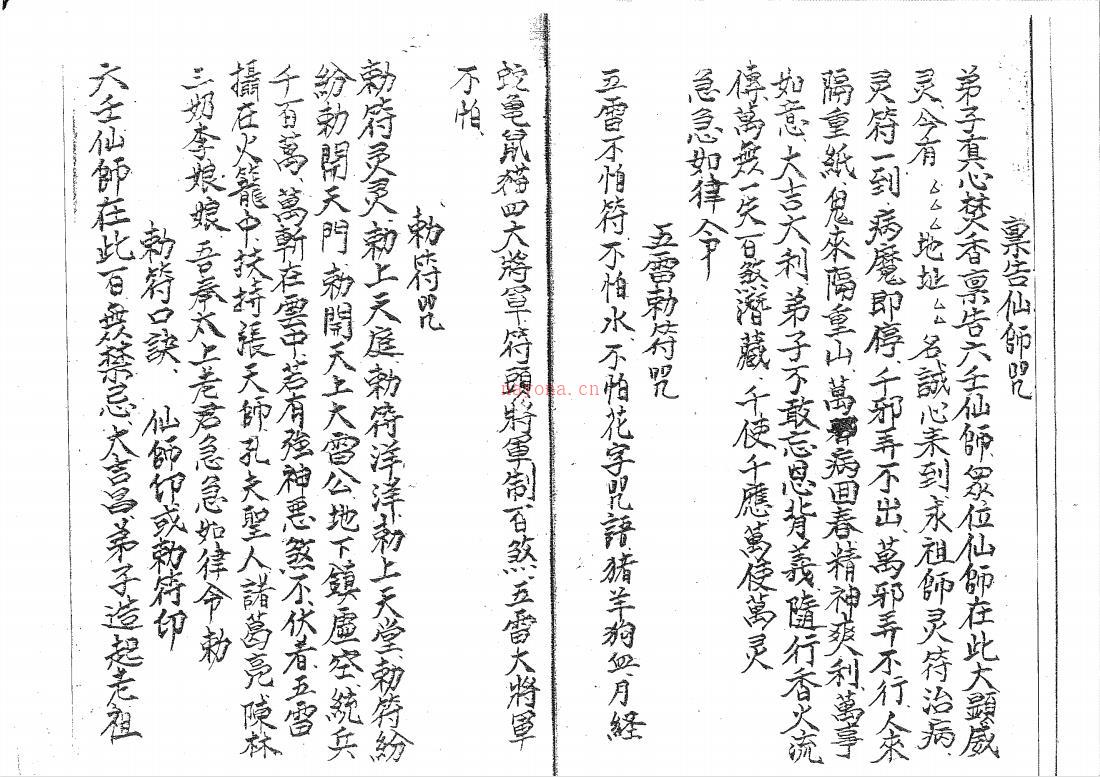 稟告仙師咒
弟子真心焚香稟告六壬仙師眾位仙師在此大顯威
灵今有厶厶厶地址厶厶名誠心来到求祖師灵符治病
灵符一到病魔即停千邪弄不出萬邪弄不行人來
隔重紙鬼來隔重山萬病回春精神爽利萬事
如意大吉大利弟子不敢忘恩背義隨行香火流
傳萬無一失百煞潛藏千使千應萬使萬灵
急急如律令
五雷勅符咒
五雷不怕符不怕水不怕花字咒語猪羊狗血月経
蛇龟鼠猫四大將軍符頭將軍制百煞五雷大將軍
不怕
勅符咒
勅符灵灵勅上天庭勅符洋洋勅上天堂勅符紛
紛勅開天門勅開天上大雷公地下鎮虛空統兵
千百萬萬斬在雲中若有強神惡煞不伏者五雷
攝在火籠中扶持張天師孔夫聖人諸葛亮陳林
三奶李娘娘吾奉太上老君急急如律令勅
勅符口訣 仙師印或勅符印
六壬仙師在此百無禁忌大吉昌弟子造起老祖
noyona.cn